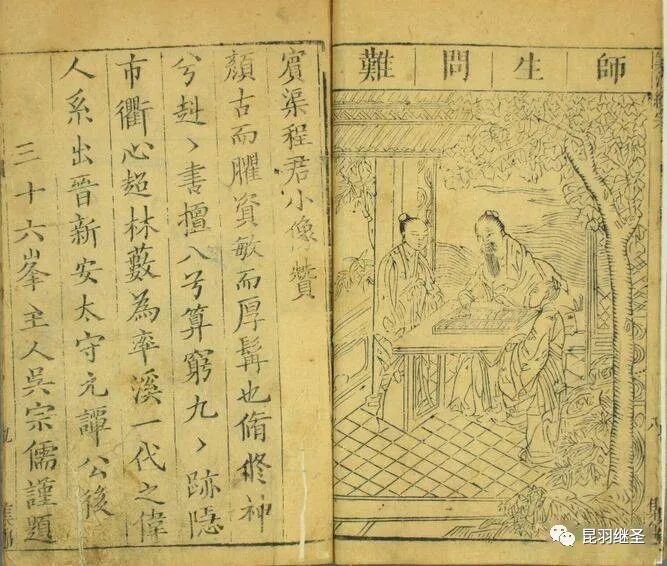 師生問難
賓渠程君小像贊
顏古而臞資敏而厚髯也脩修神
兮赳〻書擅八兮算窮九〻跡隱
市衢心超林藪為率溪一代之偉
人系出晉新安太守元譚公後
三十六峯主人吳宗儒謹題
八
九
昆羽继圣